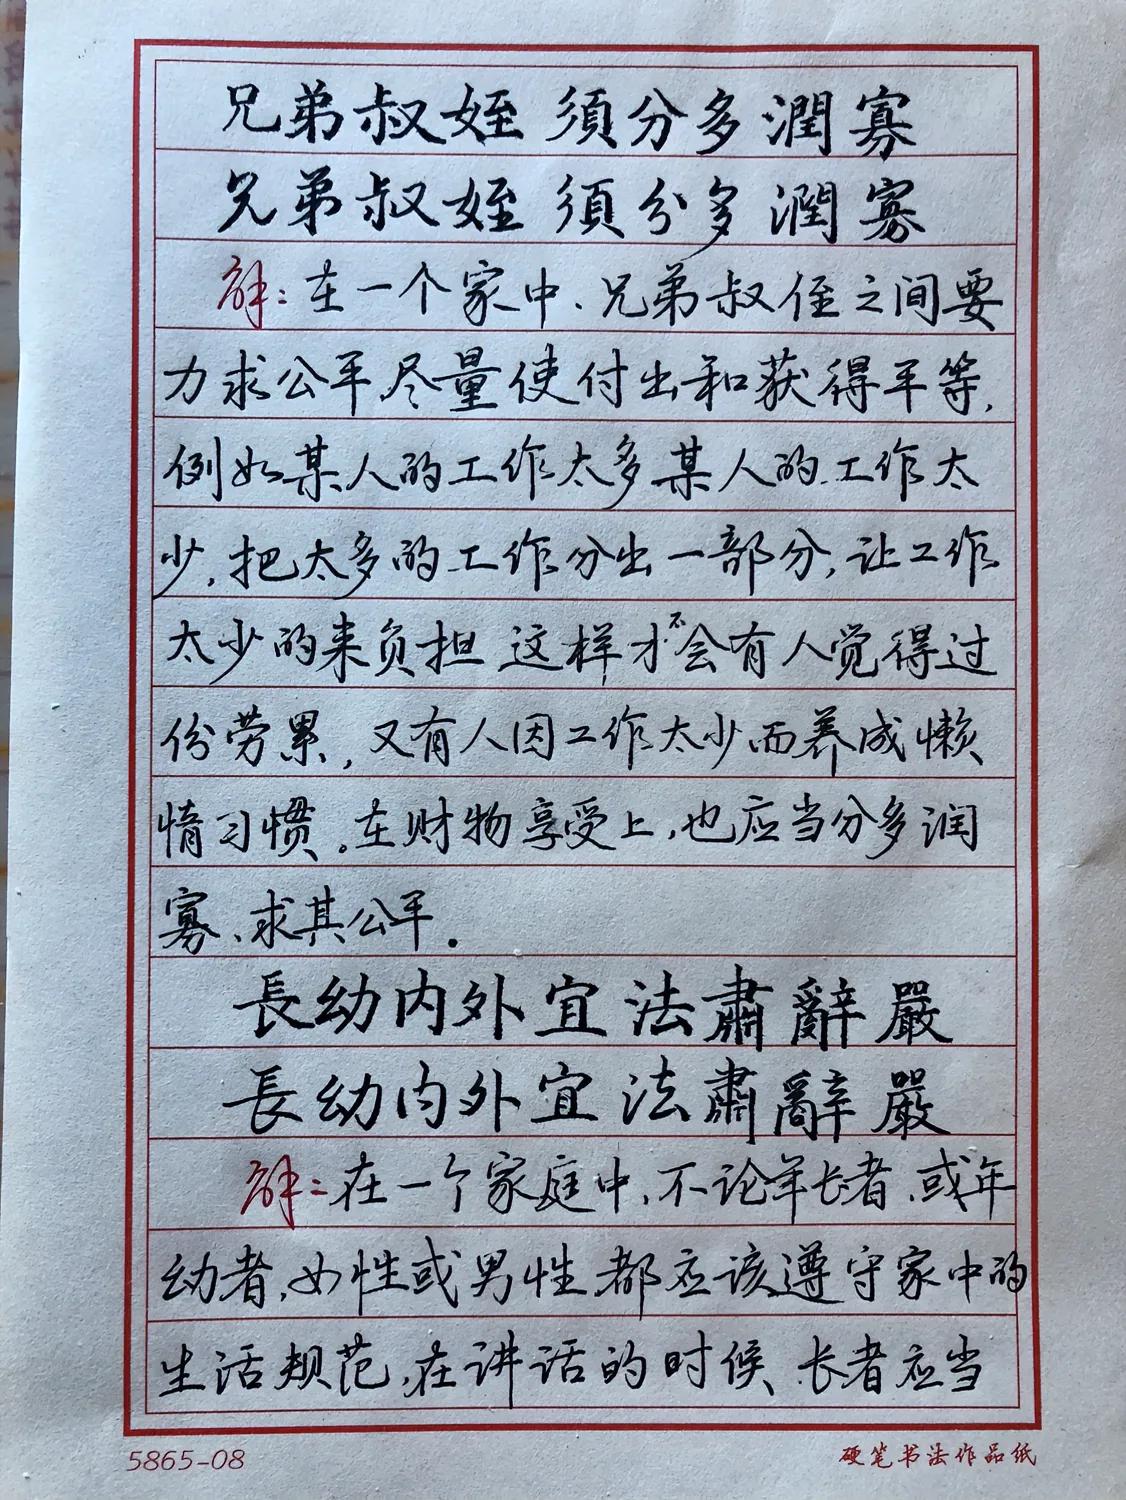 兄弟叔姪須分多潤寡
兄弟叔姪須分多潤寡
解:在一个家中、兄弟叔侄之间要
力求公平,尽量使付出和获得平等,
例如某人的工作太多某人的工作太
少,把太多的工作分出一部分,让工作
太少的来负担 这样,才不会有人觉得过
份劳累,又有人因工作太少而养成懒
惰习惯。在财物享受上,也应当分多润
寡、求其公平.
長幼内外宜法肅辭嚴
長幼内外宜法肅辭嚴
解:在一个家庭中,不论年长者、或年
幼者,女性或男性,都应该遵守家中的
生活规范,在讲话的时候 长者应当
5865-08 硬笔书法作品纸